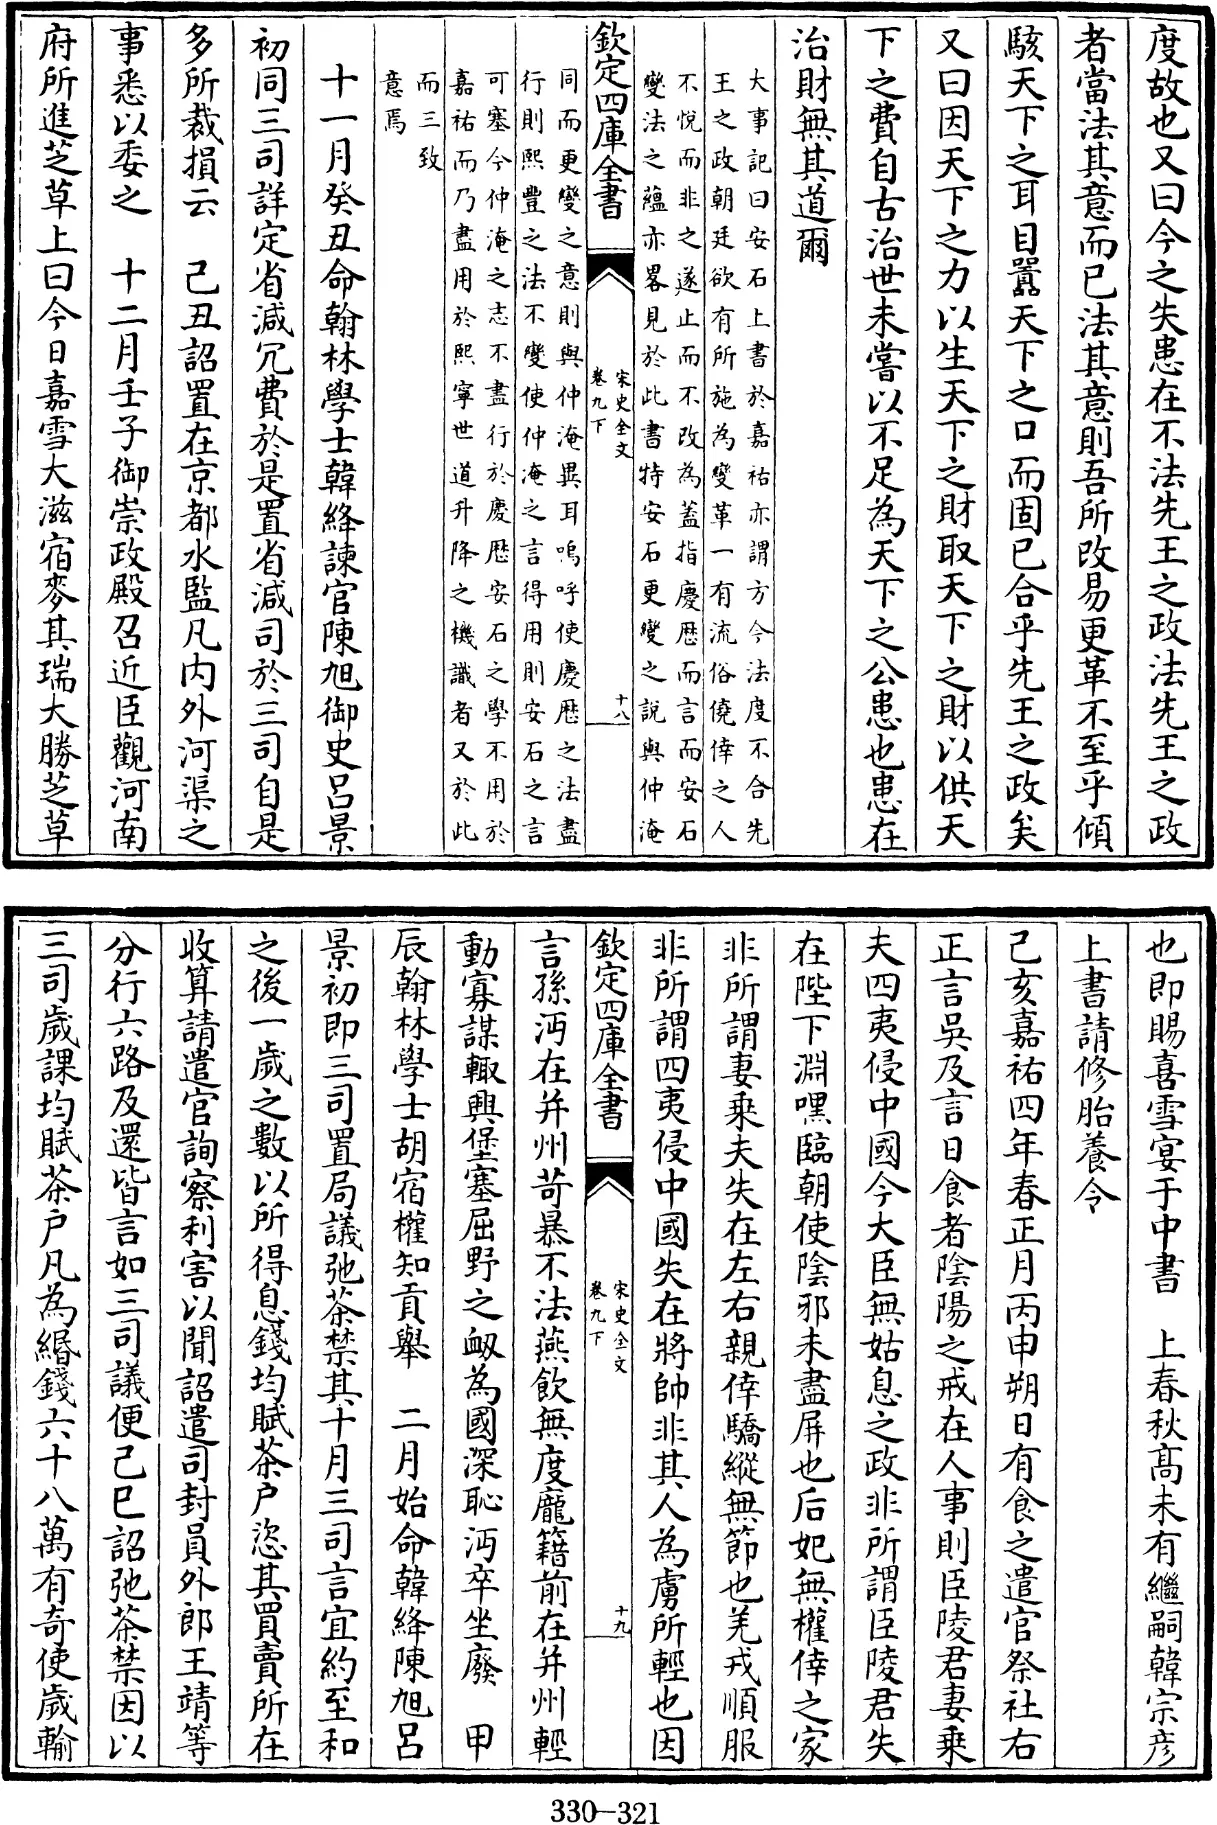 度故也又曰今之失患在不法先王之政法先王之政
者當法其意而已法其意則吾所改易更革不至乎傾
駭天下之耳目囂天下之口而固已合乎先王之政矣
又曰因天下之力以生天下之財取天下之財以供天
下之費自古治世未嘗以不足為天下之公患也患在
治財無其道爾
大事記曰安石上書於嘉祐亦謂方今法度不合先
王之政朝廷欲有所施為變革一有流俗僥倖之人
不悅而非之遂止而不改為蓋指慶厯而言而安石
變法之蘊亦畧見於此書特安石更變之說與仲淹
欽定四庫全書
宋史全文
卷九下
十八
同而更變之意則與仲淹異耳嗚呼使慶厯之法盡
行則熙豐之法不變使仲淹之言得用則安石之言
可塞今仲淹之志不盡行於慶厯安石之學不用於
嘉祐而乃盡用於熙寧世道升降之機識者又於此
而三致
意焉
十一月癸丑命翰林學士韓絳諫官陳旭御史呂景
初同三司詳定省減冗費於是置省減司於三司自是
多所裁損云　己丑詔置在京都水監凡内外河渠之
事悉以委之　十二月壬子御崇政殿召近臣觀河南
府所進芝草上曰今日嘉雪大滋宿麥其瑞大勝芝草
也即賜喜雪宴于中書　上春秋髙未有繼嗣韓宗彦
上書請修胎養令
己亥嘉祐四年春正月丙申朔日有食之遣官祭社右
正言吳及言日食者陰陽之戒在人事則臣陵君妻乗
夫四夷侵中國今大臣無姑息之政非所謂臣陵君失
在陛下淵嘿臨朝使陰邪未盡屏也后妃無權倖之家
非所謂妻乗夫失在左右親倖驕縱無節也羌戎順服
非所謂四夷侵中國失在將帥非其人為虜所輕也因
欽定四庫全書
宋史全文
卷九下
十九
言孫沔在并州苛暴不法燕飲無度龐籍前在并州輕
動寡謀輙興堡塞屈野之衂為國深恥沔卒坐廢　甲
辰翰林學士胡宿權知貢舉　二月始命韓絳陳旭呂
景初即三司置局議弛茶禁其十月三司言宜約至和
之後一歲之數以所得息錢均賦茶户恣其買賣所在
收算請遣官詢察利害以聞詔遣司封員外郎王靖等
分行六路及還皆言如三司議便己巳詔弛茶禁因以
三司歲課均賦茶户凡為緡錢六十八萬有奇使歲輸
330-321